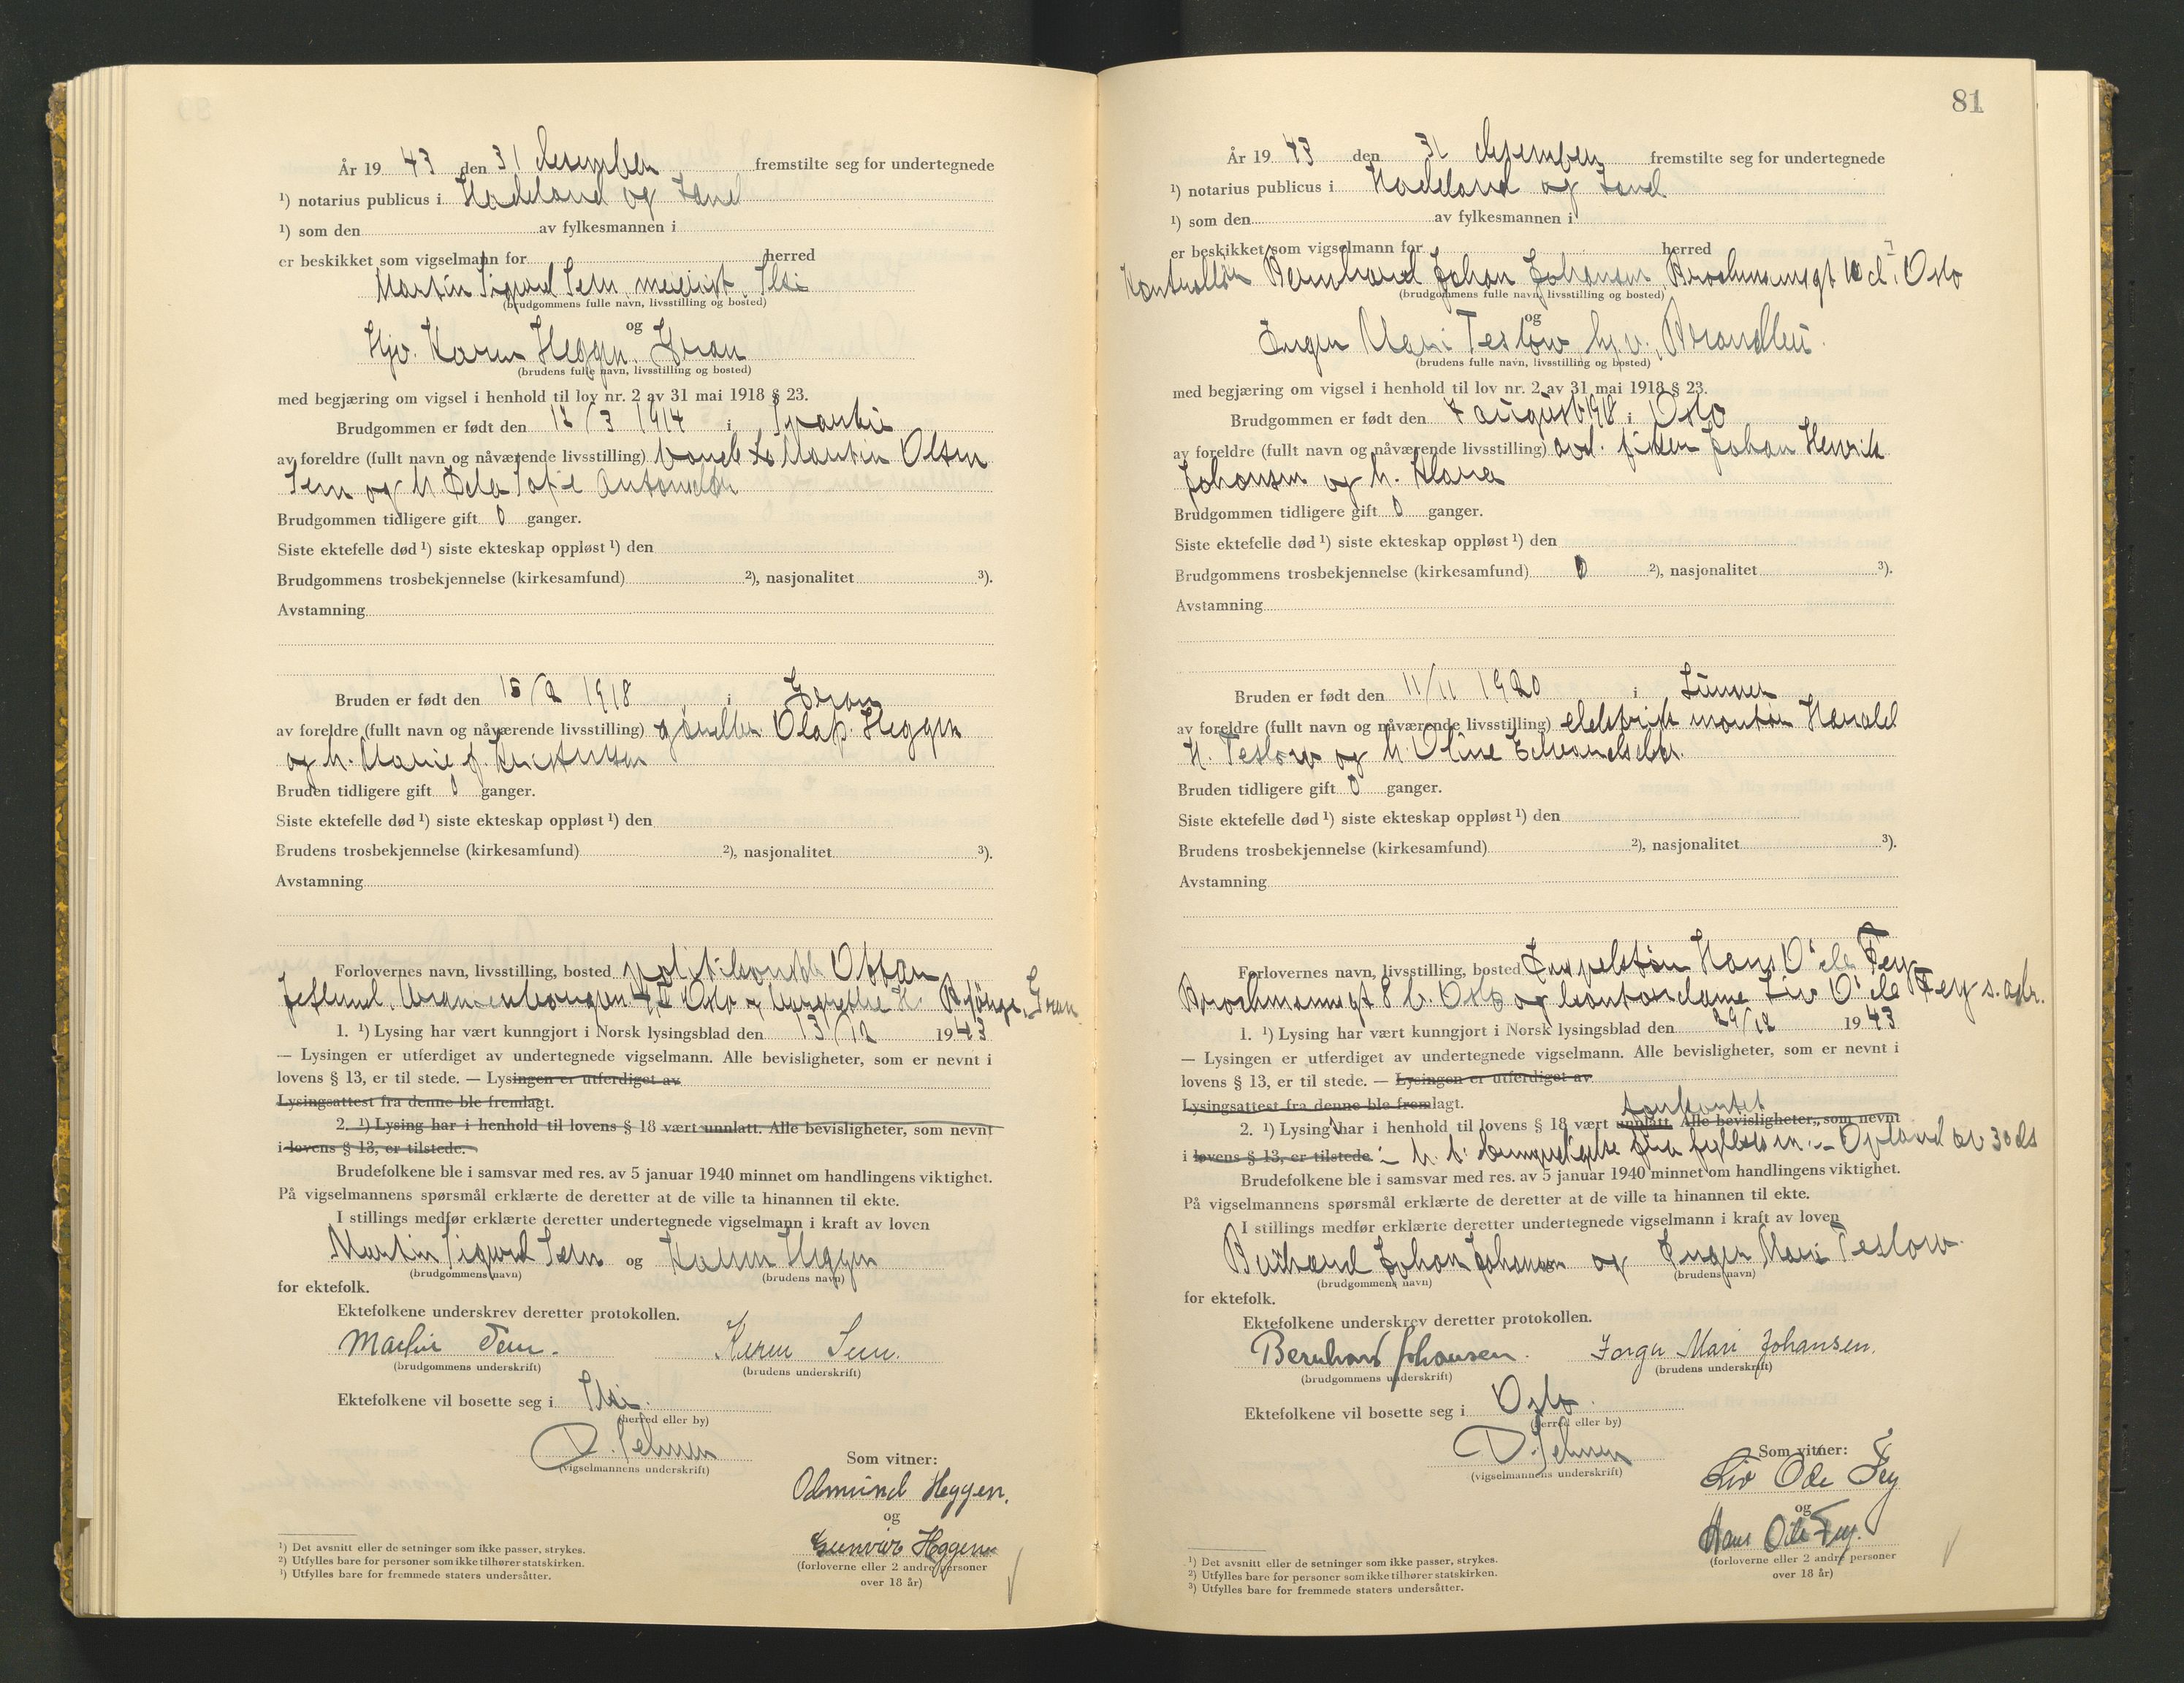 År 19 43 den 31 desember fremstilte seg for undertegnede
¹) notarius publicus i Hadeland og Land
¹) som den av fylkesmannen i
er beskikket som vigselmann for herred
Martin Sigurd Sem meierist,
(brudgommens fulle navn, livsstilling og bosted)
og
Hjv. Karen Heggen, Gran
(brudens fulle navn, livsstilling og bosted)
med begjæring om vigsel i henhold til lov nr. 2 av 31 mai 1918 § 23.
Brudgommen er født den 12/3 1914 i
av foreldre (fullt navn og nåværende livsstilling) Martin Olsen
Sem og h.
Brudgommen tidligere gift 0 ganger.
Siste ektefelle død ¹) siste ekteskap oppløst ¹) den
Brudgommens trosbekjennelse (kirkesamfund) ²), nasjonalitet ³).
Avstamning
Bruden er født den 15/2 1918 i Gran
av foreldre (fullt navn og nåværende livsstilling) Olaf Heggen
og h. Marie f.
Bruden tidligere gift 0 ganger.
Siste ektefelle død ¹) siste ekteskap oppløst ¹) den
Brudens trosbekjennelse (kirkesamfund) ²), nasjonalitet ³).
Avstamning
Forlovernes navn, livsstilling, bosted
Oslo og Gran
1. ¹) Lysing har vært kunngjort i Norsk lysingsblad den 13/12 1943
— Lysingen er utferdiget av undertegnede vigselmann. Alle bevisligheter, som er nevnt i
lovens § 13, er til stede. — Lysingen er utferdiget av
Lysingsattest fra denne ble fremlagt.
2. ¹) Lysing har i henhold til lovens § 18 vært unnlatt. Alle bevisligheter, som nevnt
i lovens § 13, er tilstede.
Brudefolkene ble i samsvar med res. av 5 januar 1940 minnet om handlingens viktighet.
På vigselmannens spørsmål erklærte de deretter at de ville ta hinannen til ekte.
I stillings medfør erklærte deretter undertegnede vigselmann i kraft av loven
Martin Sigurd Sem og Karen Heggen
(brudgommens navn) (brudens navn)
for ektefolk.
Ektefolkene underskrev deretter protokollen.
Martin Sem. Karen Sem.
(brudgommens underskrift) (brudens underskrift)
Ektefolkene vil bosette seg i
(herred eller by)
(vigselmannens underskrift)
Som vitner:
Odmund Heggen.
og
Gunvor Heggen
(forloverne eller 2 andre personer
over 18 år)
¹) Det avsnitt eller de setninger som ikke passer, strykes.
²) Utfylles bare for personer som ikke tilhører statskirken.
³) Utfylles bare for fremmede staters undersåtter.
81
År 19 43 den 31 desember fremstilte seg for undertegnede
¹) notarius publicus i Hadeland og Land
¹) som den av fylkesmannen i
er beskikket som vigselmann for herred
Kontrollør Bernhard Johan Johansen, Brochmannsgt Oslo
(brudgommens fulle navn, livsstilling og bosted)
og
Inger Mari Teslow hjv., Brandbu.
(brudens fulle navn, livsstilling og bosted)
med begjæring om vigsel i henhold til lov nr. 2 av 31 mai 1918 § 23.
Brudgommen er født den 7 august 1918 i Oslo
av foreldre (fullt navn og nåværende livsstilling) Johan Henrik
Johansen og h. Klara
Brudgommen tidligere gift 0 ganger.
Siste ektefelle død ¹) siste ekteskap oppløst ¹) den
Brudgommens trosbekjennelse (kirkesamfund) 0 ²), nasjonalitet ³).
Avstamning
Bruden er født den 11/11 1920 i Lunner
av foreldre (fullt navn og nåværende livsstilling) elektrisk montør Harald
H. Teslow og h. Oline
Bruden tidligere gift 0 ganger.
Siste ektefelle død ¹) siste ekteskap oppløst ¹) den
Brudens trosbekjennelse (kirkesamfund) ²), nasjonalitet ³).
Avstamning
Forlovernes navn, livsstilling, bosted Hans Ode Fey
Brochmannsgt 8 b. Oslo og kontordame Liv Ode Fey s. adr.
1. ¹) Lysing har vært kunngjort i Norsk lysingsblad den 29/12 1943
— Lysingen er utferdiget av undertegnede vigselmann. Alle bevisligheter, som er nevnt i
lovens § 13, er til stede. — Lysingen er utferdiget av
Lysingsattest fra denne ble fremlagt.
forkortet
2. ¹) Lysing har i henhold til lovens § 18 vært unnlatt. Alle bevisligheter, som nevnt
i lovens § 13, er tilstede
Brudefolkene ble i samsvar med res. av 5 januar 1940 minnet om handlingens viktighet.
På vigselmannens spørsmål erklærte de deretter at de ville ta hinannen til ekte.
I stillings medfør erklærte deretter undertegnede vigselmann i kraft av loven
Bernhard Johan Johansen og Inger Mari Teslow.
(brudgommens navn) (brudens navn)
for ektefolk.
Ektefolkene underskrev deretter protokollen.
Bernhard Johansen. Inger Mari Johansen.
(brudgommens underskrift) (brudens underskrift)
Ektefolkene vil bosette seg i Oslo.
(herred eller by)
(vigselmannens underskrift)
Som vitner:
Liv Ode Fey
og
Hans Ode Fey.
(forloverne eller 2 andre personer
over 18 år)
¹) Det avsnitt eller de setninger som ikke passer, strykes.
²) Utfylles bare for personer som ikke tilhører statskirken.
³) Utfylles bare for fremmede staters undersåtter.